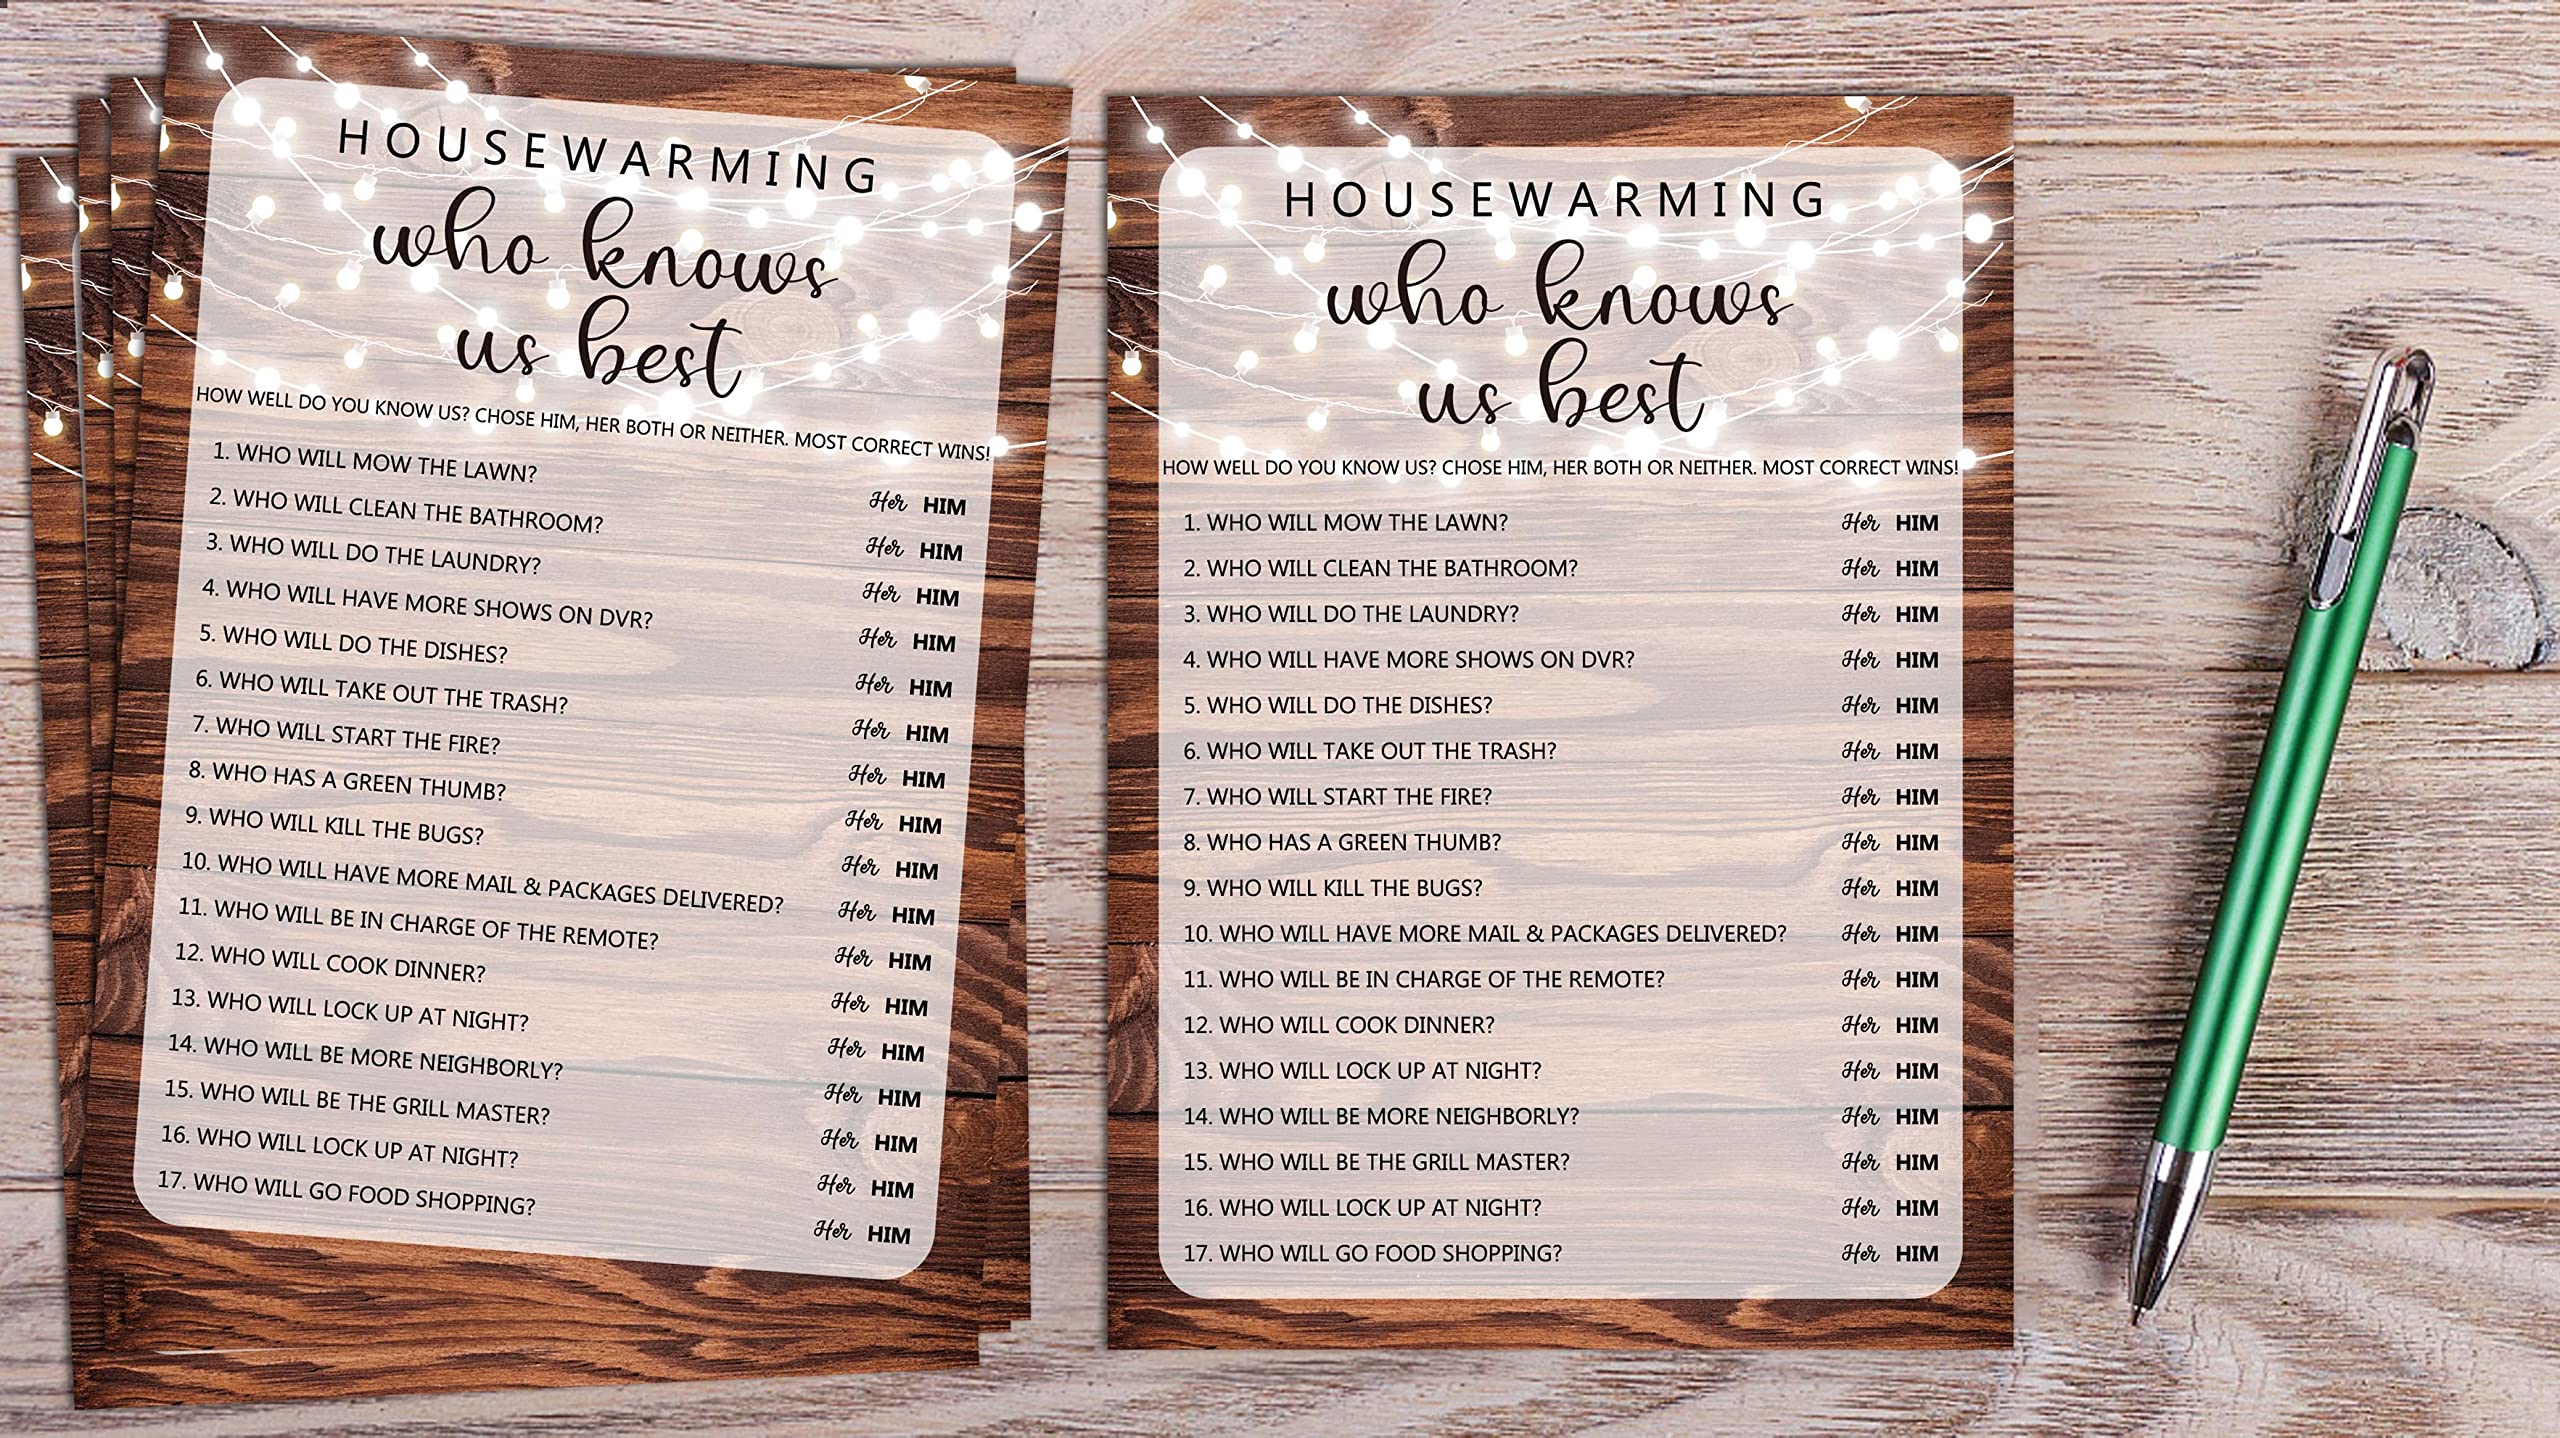 HOUSEWARMING
who knows
us best
HOW WELL DO YOU KNOW US? CHOSE HIM, HER BOTH OR NEITHER. MOST CORRECT WINS!
1. WHO WILL MOW THE LAWN? Her HIM
2. WHO WILL CLEAN THE BATHROOM? Her HIM
3. WHO WILL DO THE LAUNDRY? Her HIM
4. WHO WILL HAVE MORE SHOWS ON DVR? Her HIM
5. WHO WILL DO THE DISHES? Her HIM
6. WHO WILL TAKE OUT THE TRASH? Her HIM
7. WHO WILL START THE FIRE? Her HIM
8. WHO HAS A GREEN THUMB? Her HIM
9. WHO WILL KILL THE BUGS? Her HIM
10. WHO WILL HAVE MORE MAIL & PACKAGES DELIVERED? Her HIM
11. WHO WILL BE IN CHARGE OF THE REMOTE? Her HIM
12. WHO WILL COOK DINNER? Her HIM
13. WHO WILL LOCK UP AT NIGHT? Her HIM
14. WHO WILL BE MORE NEIGHBORLY? Her HIM
15. WHO WILL BE THE GRILL MASTER? Her HIM
16. WHO WILL LOCK UP AT NIGHT? Her HIM
17. WHO WILL GO FOOD SHOPPING? Her HIM
HOUSEWARMING
who knows
us best
HOW WELL DO YOU KNOW US? CHOSE HIM, HER BOTH OR NEITHER. MOST CORRECT WINS!
1. WHO WILL MOW THE LAWN? Her HIM
2. WHO WILL CLEAN THE BATHROOM? Her HIM
3. WHO WILL DO THE LAUNDRY? Her HIM
4. WHO WILL HAVE MORE SHOWS ON DVR? Her HIM
5. WHO WILL DO THE DISHES? Her HIM
6. WHO WILL TAKE OUT THE TRASH? Her HIM
7. WHO WILL START THE FIRE? Her HIM
8. WHO HAS A GREEN THUMB? Her HIM
9. WHO WILL KILL THE BUGS? Her HIM
10. WHO WILL HAVE MORE MAIL & PACKAGES DELIVERED? Her HIM
11. WHO WILL BE IN CHARGE OF THE REMOTE? Her HIM
12. WHO WILL COOK DINNER? Her HIM
13. WHO WILL LOCK UP AT NIGHT? Her HIM
14. WHO WILL BE MORE NEIGHBORLY? Her HIM
15. WHO WILL BE THE GRILL MASTER? Her HIM
16. WHO WILL LOCK UP AT NIGHT? Her HIM
17. WHO WILL GO FOOD SHOPPING? Her HIM